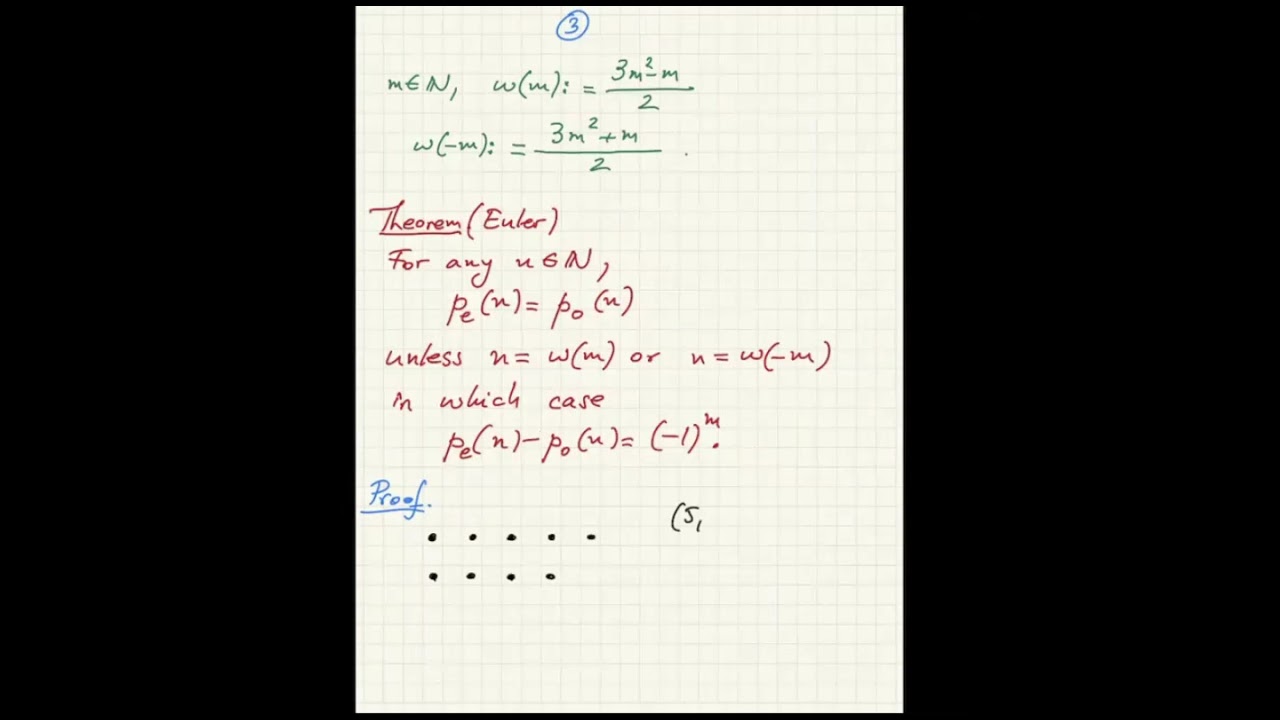 3
m∈ℕ, w(m): = (3m²-m)/2
w(-m): = (3m²+m)/2 .
Theorem (Euler)
For any n∈ℕ,
pₑ(n) = pₒ(n)
unless n = w(m) or n = w(-m)
in which case
pₑ(n) - pₒ(n) = (-1)ᵐ.
Proof.
(5,